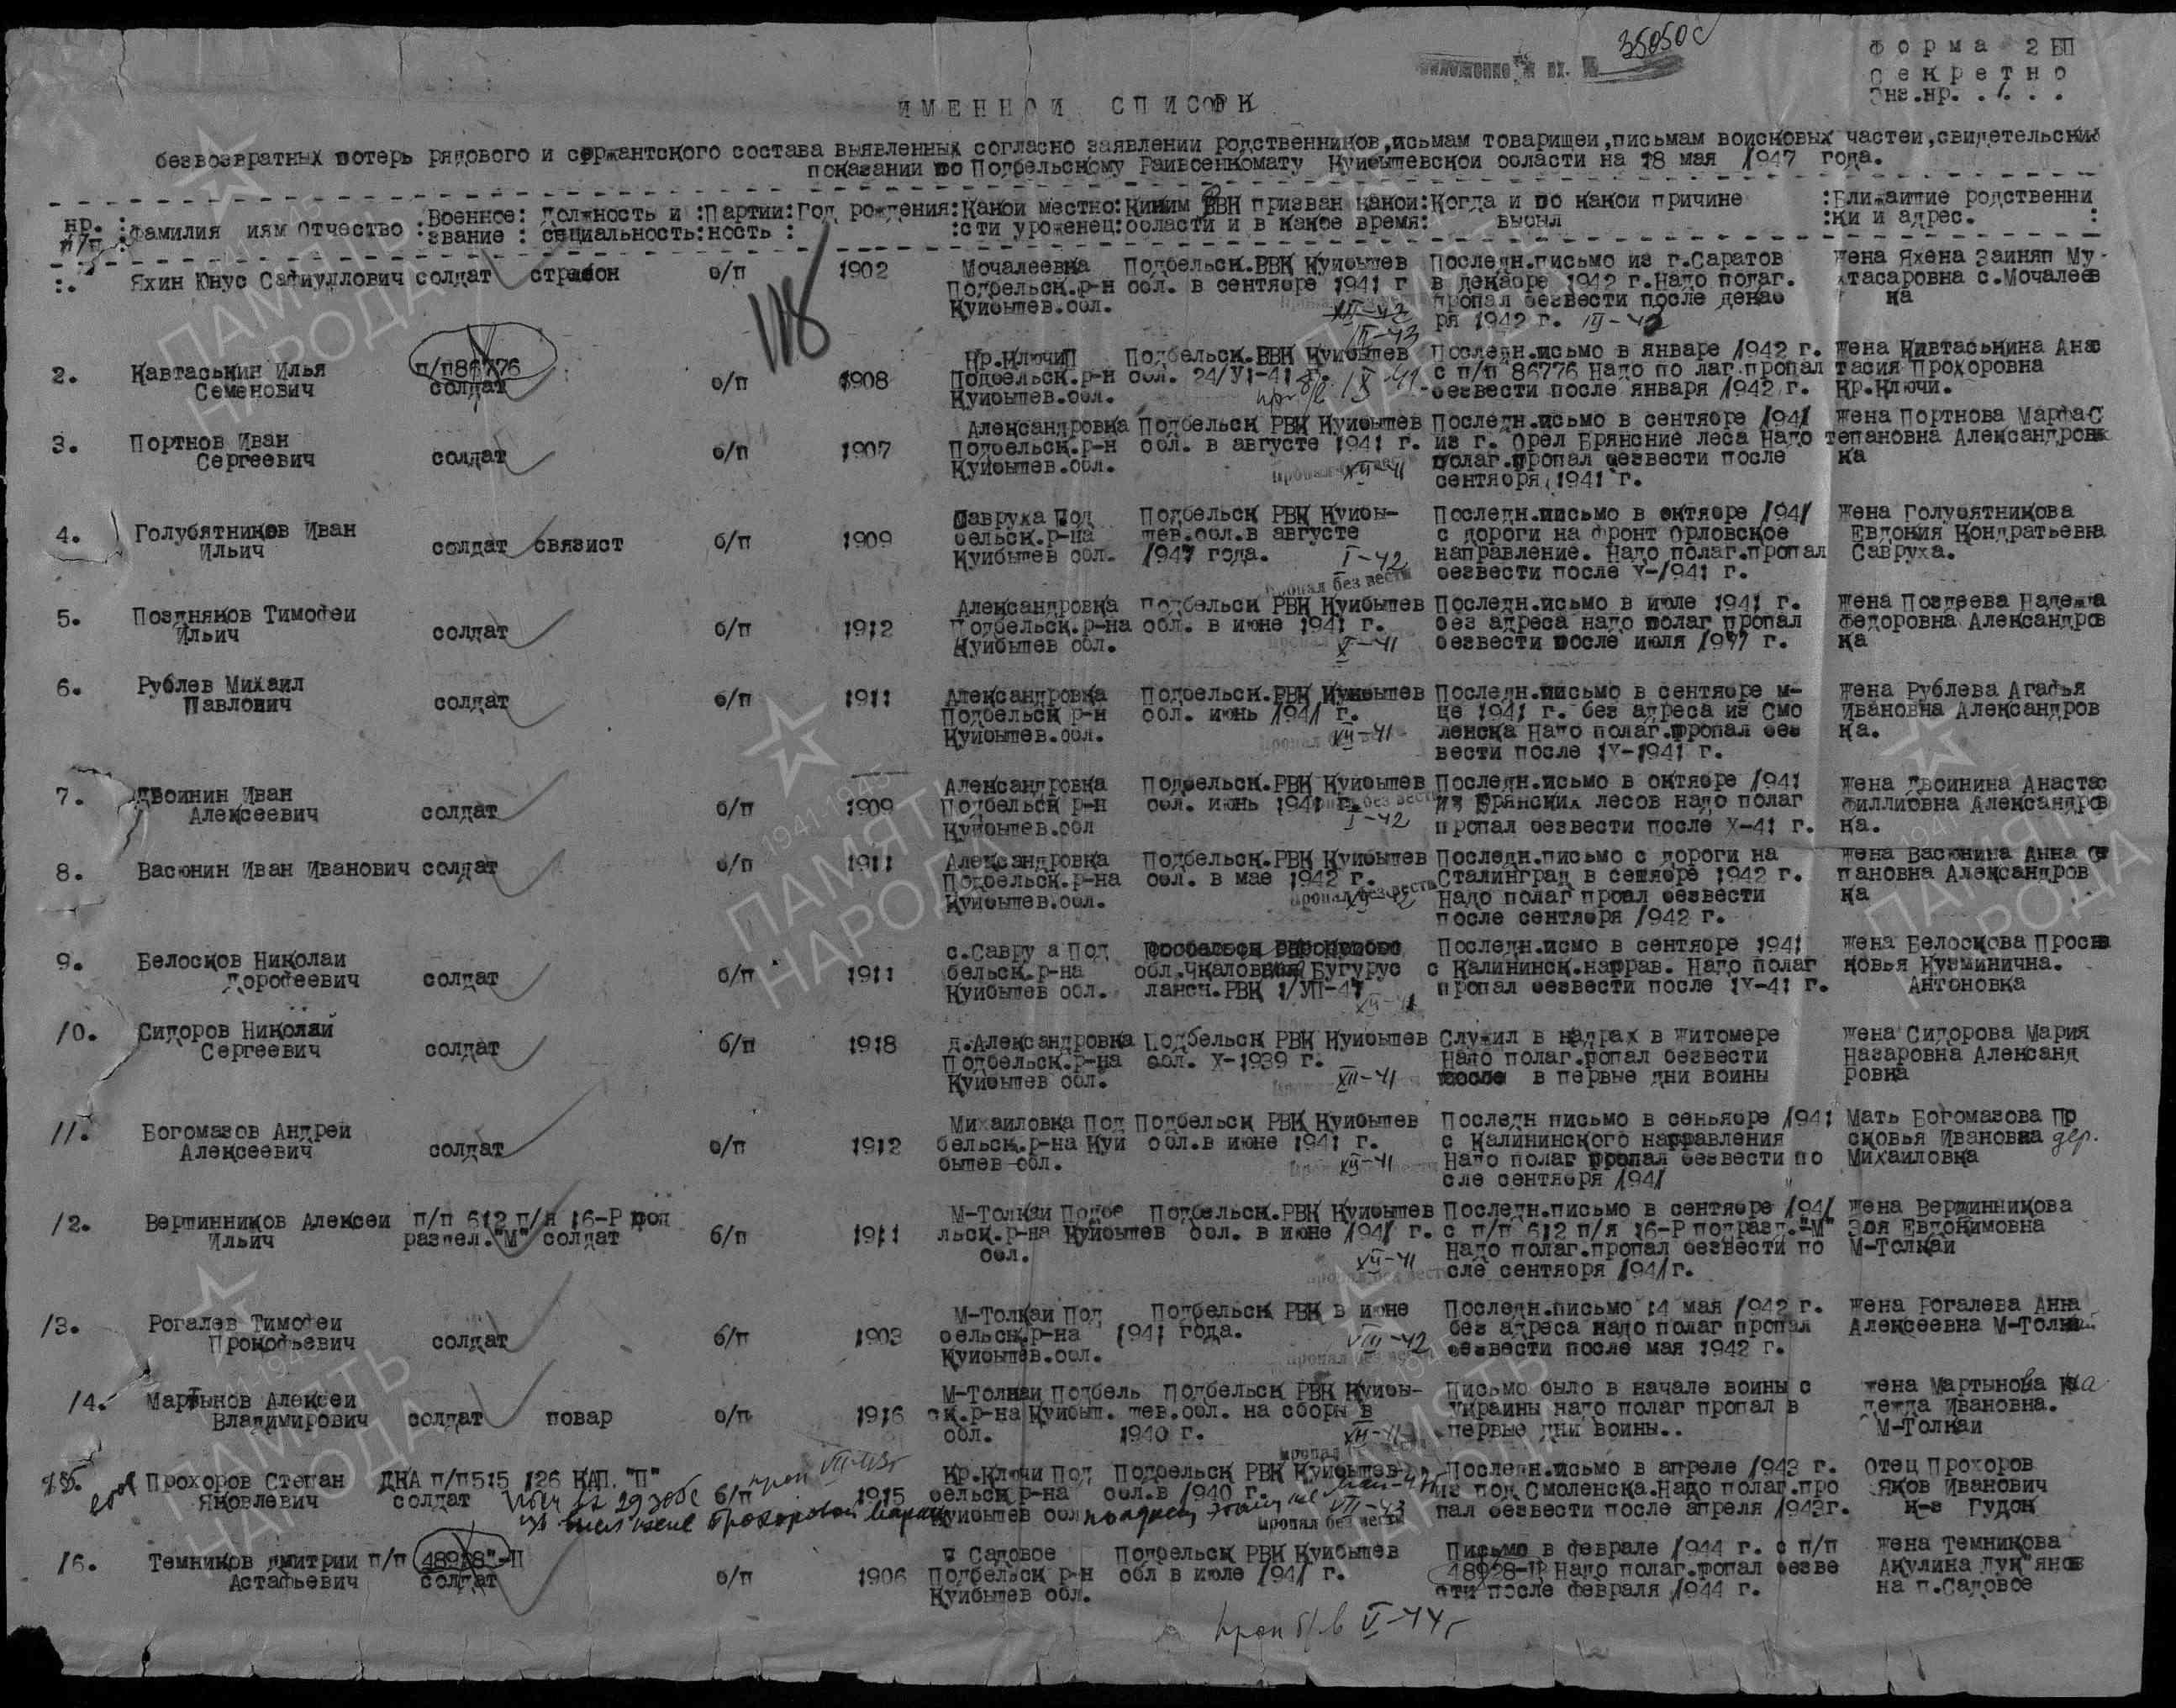 35050с
Форма 2 БП
Секретно
Экз.нр. . 1. . .
ИМЕННОИ СПИСОК
безвозвратных потерь рядового и сержантского состава выявленных согласно заявлении родственников,исьмам товарищеи,письмам воисковых частеи,свидетельских
показании по Подбельскому Раивоенкомату Куибышевскои области на 18 мая 1947 года.
нр. п/п : Фамилия иям Отчество : Военное звание : Должность и специальность : Партииность : Год рождения : Какои местности уроженец : Каким РВК призван какои области и в какое время : Когда и по какои причине выбыл : Ближаитие родственники и адрес.
118
Яхин Юнус Сафиуллович солдат о/п 1902
Мочалеевка Подбельск.р-н Куибышев.обл.
Подбельск.ВВК Куибышев обл. в сентябре 1941 г
XII-42
III-43
Последн.письмо из г.Саратов в декабре 1942 г.Надо полаг. пропал безвести после декаб ря 1942 г.
жена Яхена Заиняп Му- хтасаровна с.Мочалеев ка
2. Кавтаськин Илья Семенович п/п86776 солдат о/п 1908
Кр.Ключи П Подбельск.р-н Куибышев.обл.
Подбельск.ВВК Куибышев обл. 24/У1-41 г.
Последн.исьмо в январе 1942 г. с п/п 86776 Надо по лаг.пропал безвести после января 1942 г.
жена Кивтаськина Анас тасия Прохоровна Кр.Ключи.
3. Портнов Иван Сергеевич солдат о/п 1907
Александровка Подбельск.р-н Куибышев.обл.
Подбельск РВК Куибышев обл. в августе 1941 г.
XII-41
Последн.исьмо в сентябре 1941 из г. Орел Брянские леса Надо полаг.пропал безвести после сентября 1941 г.
жена Портнова МарфаС тепановна Александров ка
4. Голубятников Иван Ильич солдат связист б/п 1909
Савруха Под бельск.р-на Куибышев обл.
Подбельск РВК Куибы- шев.обл.в августе 1947 года.
I-42
Пропал без вести
Последн.письмо в октябре 1941 с дороги на фронт Орловское направление. Надо полаг.пропал безвести после У-1941 г.
жена Голубятникова Евдокия Кондратьевна Савруха.
5. Поздняков Тимофеи Ильич солдат б/п 1912
Александровка Подбельск.р-на Куибышев обл.
Подбельск РВК Куибышев обл. в июне 1941 г.
X-41
Последн.исьмо в июле 1941 г. без адреса надо полаг пропал безвести после июля 1941 г.
жена Поздеева Надежда Федоровна Александров ка
6. Рублев Михаил Павлович солдат б/п 1911
Александровка Подбельск р-н Куибышев.обл.
Подбельск.РВК Куибышев обл. июнь 1941 г.
XII-41
Последн.письмо в сентябре м- це 1941 г. без адреса из Смо ленска Надо полаг.пропал без вести после 1Х-1941 г.
жена Рублева Агафья Ивановна Александров ка.
7. Двоинин Иван Алексеевич солдат б/п 1909
Александровка Подбельск р-н Куибышев.обл
Подбельск.РВК Куибышев обл. июнь 1941 г.
I-42
Последн.исьмо в октябре 1941 из Брянских лесов надо полаг пропал безвести после Х-41 г.
жена Двоинина Анастас филлиовна Александров ка.
8. Васюнин Иван Иванович солдат б/п 1911
Александровка Подбельск.р-на Куибышев.обл.
Подбельск.РВК Куибышев обл. в мае 1942 г.
Пропал без вести
Последн.письмо с дороги на Сталинград в сетябре 1942 г. Надо полаг пропал безвести после сентября 1942 г.
жена Васюнина Анна Сте пановна Александров ка
9. Белосков Николаи Дорофеевич солдат б/п 1911
с.Савру а Под бельск.р-на Куибышев обл.
обл.Чкаловская Бугурус лансн.РВК 1/УП-41
XII-41
Последн.исмо в сентябре 1941 с Калининск.направ. Надо полаг пропал безвести после 1Х-41 г.
жена Белоскова Проско ковья Кузминична. Антоновка
10. Сидоров Николай Сергеевич солдат б/п 1918
д.Александровка Подбельск.р-на Куибышев обл.
Подбельск РВК Куибышев обл. Х-1939 г.
XII-41
Служил в кадрах в Житомере Надо полаг.ропал безвести после в первые дни воины
жена Сидорова Мария Назаровна Александ ровка
11. Богомазов Андреи Алексеевич солдат б/п 1912
Михаиловка Под бельск.р-на Куи бышев обл.
Подбельск РВК Куибышев обл.в июне 1941 г.
XII-41
Последн письмо в сеньябре 1941 с Калининского направления Надо полаг пропал безвести по сле сентября 1941
Мать Богомазова Пр сковья Ивановна дер. Михаиловка
12. Вершинников Алексеи Ильич п/п 612 п/я 16-Р под раздел."М" солдат б/п 1911
М-Толкаи Подбе льск.р-на Куибышев обл.
Подбельск.РВК Куибышев обл. в июне 1941 г.
XII-41
Последн.письмо в сентябре 1941 с п/п 612 п/я 16-Р подразд."М" Надо полаг.пропал безвести по сле сентября 1941г.
жена Вершинникова Зоя Евдокимовна М-Толкаи
13. Рогалев Тимофеи Прокофьевич солдат б/п 1903
М-Толкаи Под бельск.р-на Куибышев.обл.
Подбельск РВК в июне 1941 года.
VIII-42
Последн.письмо 14 мая 1942 г. без адреса надо полаг пропал безвести после мая 1942 г.
жена Рогалева Анна Алексеевна М-Толкай
14. Мартынов Алексеи Владимирович солдат повар б/п 1916
М-Толкаи Подбель ск.р-на Куибыш. обл.
Подбельск РВК Куибы- шев.обл. на сборы в 1940 г.
XII-41
Письмо было в начале воины с украины надо полаг пропал в первые дни воины..
жена Мартынова На дежда Ивановна. М-Толкаи
15. Прохоров Степан Яковлевич ДКА п/п515 126 КАП."П" солдат б/п 1915
Кр.Ключи Под бельск р-на Куибышев обл
Подбельск РВК Куибышев обл.в 1940 г.
VII-43
Пропал без вести
Последн.исьмо в апреле 1943 г. из под Смоленска.Надо полаг.про пал безвести после апреля 1943г.
Отец Прохоров Яков Иванович к-з Гудок
16. Темников Дмитрии Астафьевич п/п 48928"-П солдат б/п 1906
п Садовое Подбельск р-н Куибышев обл.
Подбельск РВК Куибышев обл в июле 1941 г.
Письмо в феврале 1944 г. с п/п 48928-П Надо полаг.пропал безве сти после февраля 1944 г.
жена Темникова Акулина Лук"янов на п.Садовое
проп б/в V-44г
ПАМЯТЬ НАРОДА
1941-1945